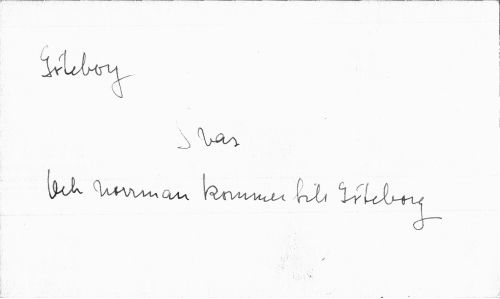 Göteborg
I vas
Och norrman kommer till Göteborg